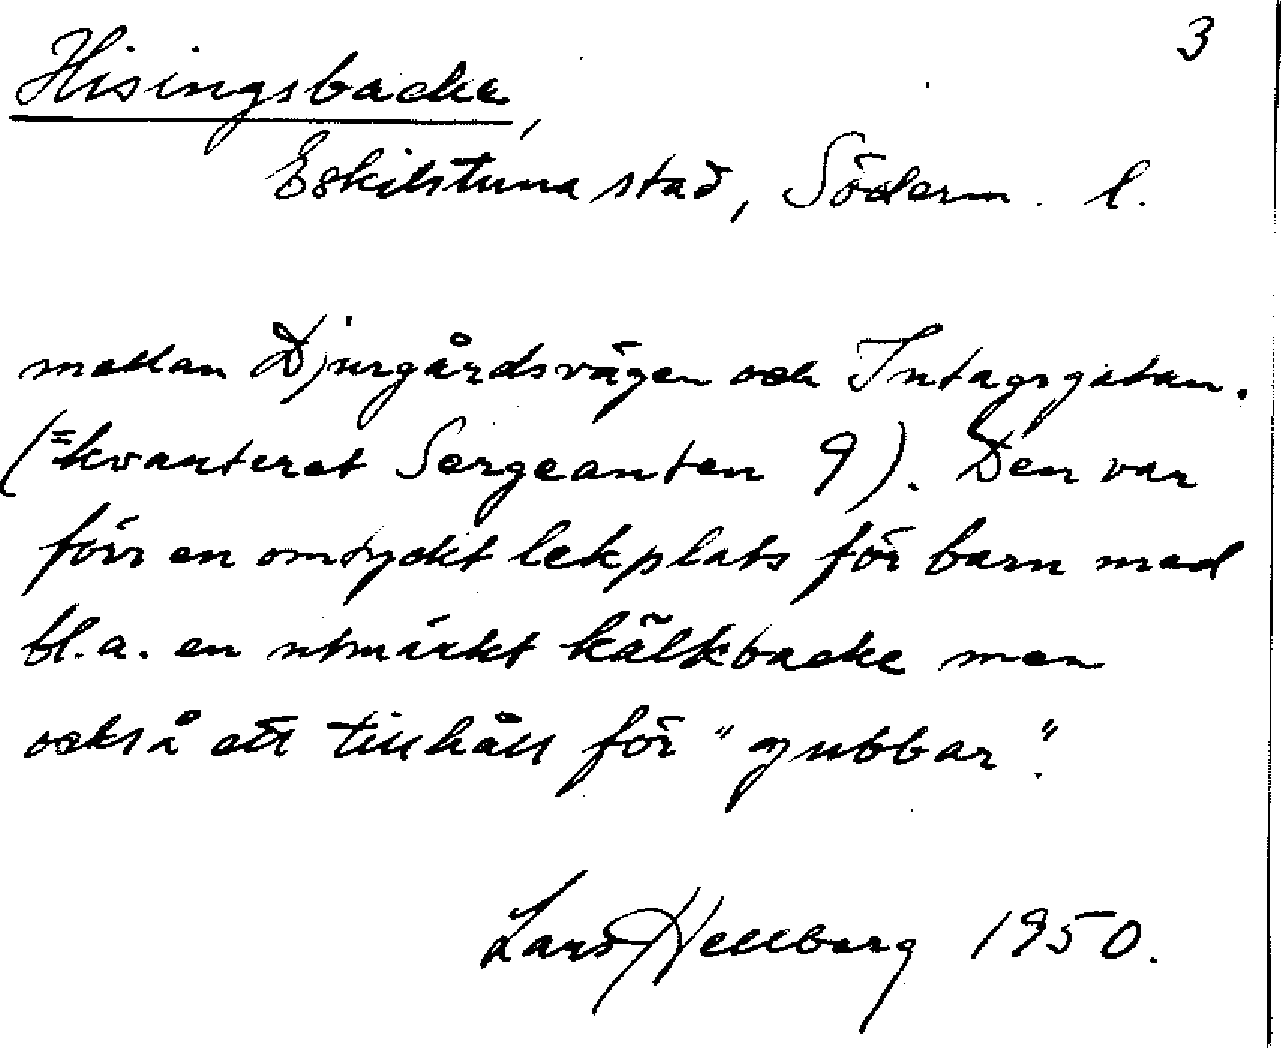 3
Hisingsbacke,
Eskilstuna stad, Söderm. l.
mellan Djurgårdsvägen och Intagsgatan.
(=kvarteret Sergeanten 9). Den var
förr en omtyckt lekplats för barn med
bl.a. en utmärkt kälkbacke men
också ett tillhåll för "gubbar".
Lars Hellberg 1950.